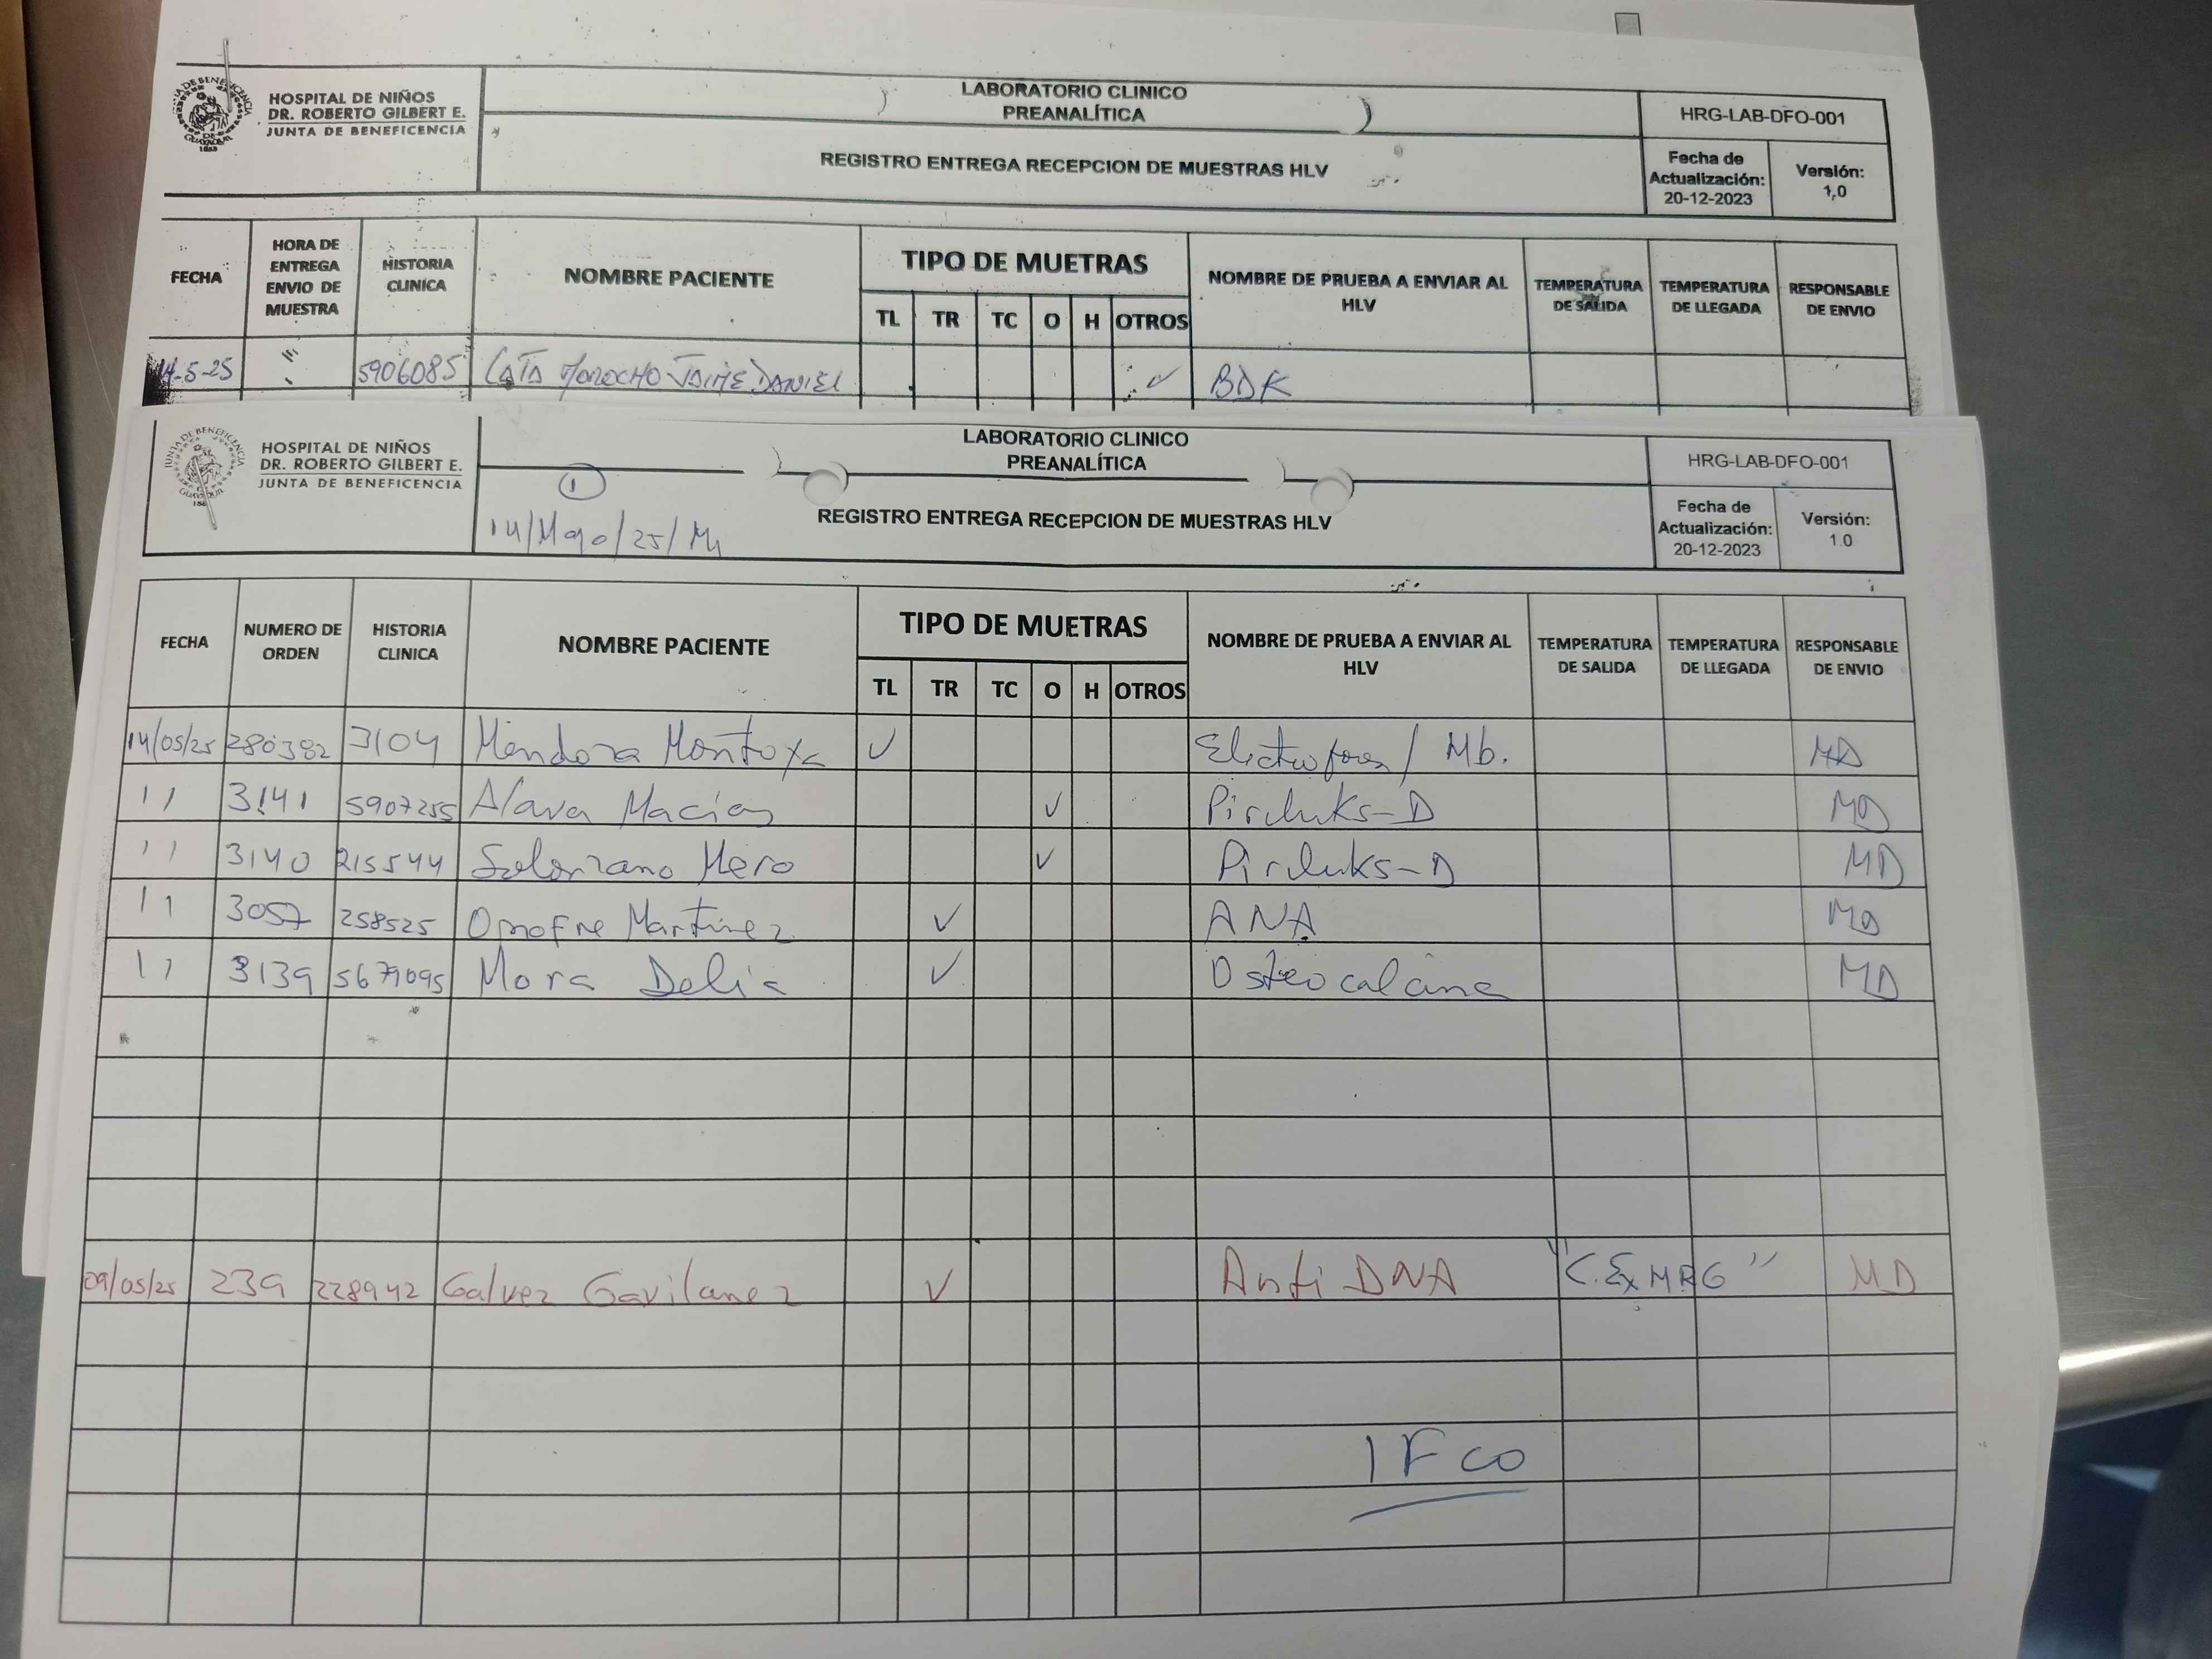 HOSPITAL DE NIÑOS
DR. ROBERTO GILBERT E.
JUNTA DE BENEFICENCIA
LABORATORIO CLINICO
PREANALÍTICA
REGISTRO ENTREGA RECEPCION DE MUESTRAS HLV
HRG-LAB-DFO-001
Fecha de Actualización: 20-12-2023
Versión: 1,0
FECHA HORA DE ENTREGA ENVIO DE MUESTRA HISTORIA CLINICA NOMBRE PACIENTE TIPO DE MUETRAS NOMBRE DE PRUEBA A ENVIAR AL HLV TEMPERATURA DE SALIDA TEMPERATURA DE LLEGADA RESPONSABLE DE ENVIO
TL TR TC O H OTROS
14-5-25 " 5906085 MOROCHO JAIME DANIEL ✓ BDK
HOSPITAL DE NIÑOS
DR. ROBERTO GILBERT E.
JUNTA DE BENEFICENCIA
LABORATORIO CLINICO
PREANALÍTICA
1
14/Mayo/25/
REGISTRO ENTREGA RECEPCION DE MUESTRAS HLV
HRG-LAB-DFO-001
Fecha de Actualización: 20-12-2023
Versión: 1.0
FECHA NUMERO DE ORDEN HISTORIA CLINICA NOMBRE PACIENTE TIPO DE MUETRAS NOMBRE DE PRUEBA A ENVIAR AL HLV TEMPERATURA DE SALIDA TEMPERATURA DE LLEGADA RESPONSABLE DE ENVIO
TL TR TC O H OTROS
14/05/25 280382 3104 Mendoza Montoya ✓ Electrofores / Mb. MD
11 3141 5907255 Alava Macias ✓ Piriluks-D MD
11 3140 215544 Solorzano Mero ✓ Piriluks-D MD
11 3057 258525 Onofre Martinez ✓ ANA MD
11 3139 5679095 Mora Delia ✓ Osteocalcina MD
09/05/25 239 228942 Galvez Gavilanez ✓ Anti DNA "C.Ex HRG" MD
1 F co